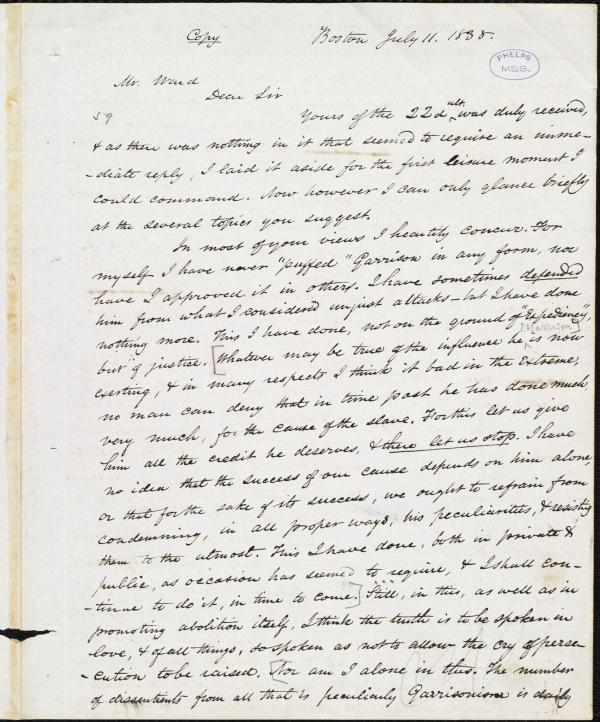 Copy
Boston July 11. 1838.
PHELPS
MSS.
Mr. Ward
Dear Sir
59
Yours of the 22d ult. was duly received,
& as there was nothing in it that seemed to require an imme-
-diate reply, I laid it aside for the first leisure moment I
could command. Now however I can only glance briefly
at the several topics you suggest.
In most of your views I heartily concur. For
myself I have never "puffed" Garrison in any form, nor
have I approved it in others. I have sometimes defended
him from what I considered unjust attacks - but I have done
nothing more. This I have done, not on the ground of "Expediency",
but of justice. [Whatever may be true of the influence he [Garrison] is now
exerting, & in many respects I think it bad in the extreme,
no man can deny that in time past he has done much
very much, for the cause of the slave. For this let us give
him all the credit he deserves, & there let us stop. I have
no idea that the success of our cause depends on him alone,
or that for the sake of its success, we ought to refrain from
condemning, in all proper ways, his peculiarities, & resisting
them to the utmost. This I have done, both in private &
public, as occasion has seemed to require, & I shall con-
-tinue to do it, in time to come.] Still, in this, as well as in
promoting abolition itself, I think the truth is to be spoken in
love, & of all things, so spoken as not to allow the cry of perse-
-cution to be raised. [Nor am I alone in this. The number
of dissentients from all that is peculiarly Garrisonism is daily